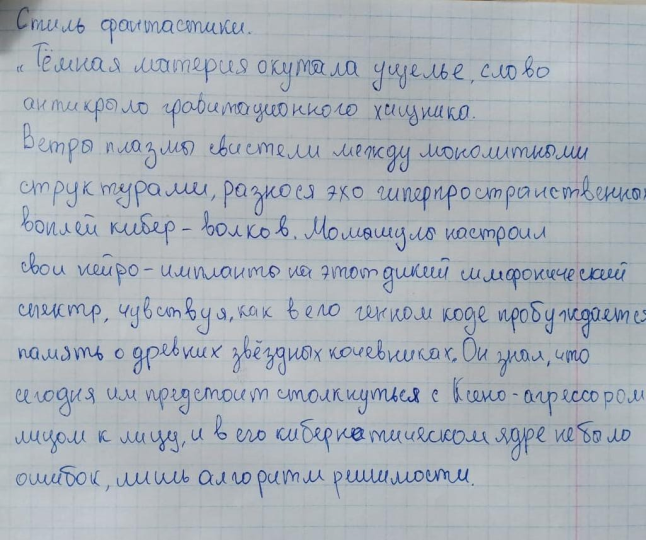 Стиль фантастики.
„Тёмная материя окутала ущелье, слово
антикрыло гравитационного хищника.
Ветры плазмы свистели между монолитными
структурами, разнося эхо гиперпространственных
воплей кибер-волков. Момышулы настроил
свои нейро-импланты на этот дикий симфонический
спектр, чувствуя, как в его генном коде пробуждается
память о древних звёздных кочевниках. Он знал, что
сегодня им предстоит столкнуться с Ксено-агрессором
лицом к лицу, и в его кибернетическом ядре не было
ошибок, лишь алгоритм решимости.